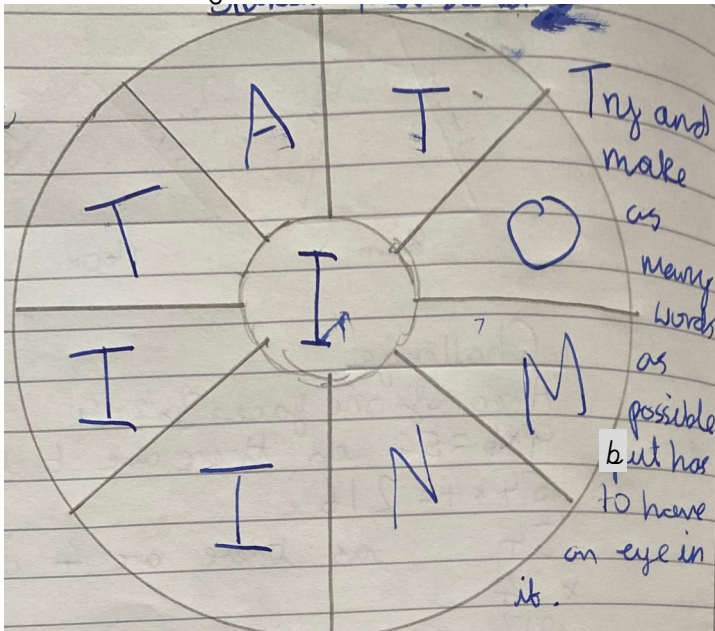 A T
T O
I
I M
I N
Try and
make
as
many
words
as
possible
but has
to have
an eye in
it.